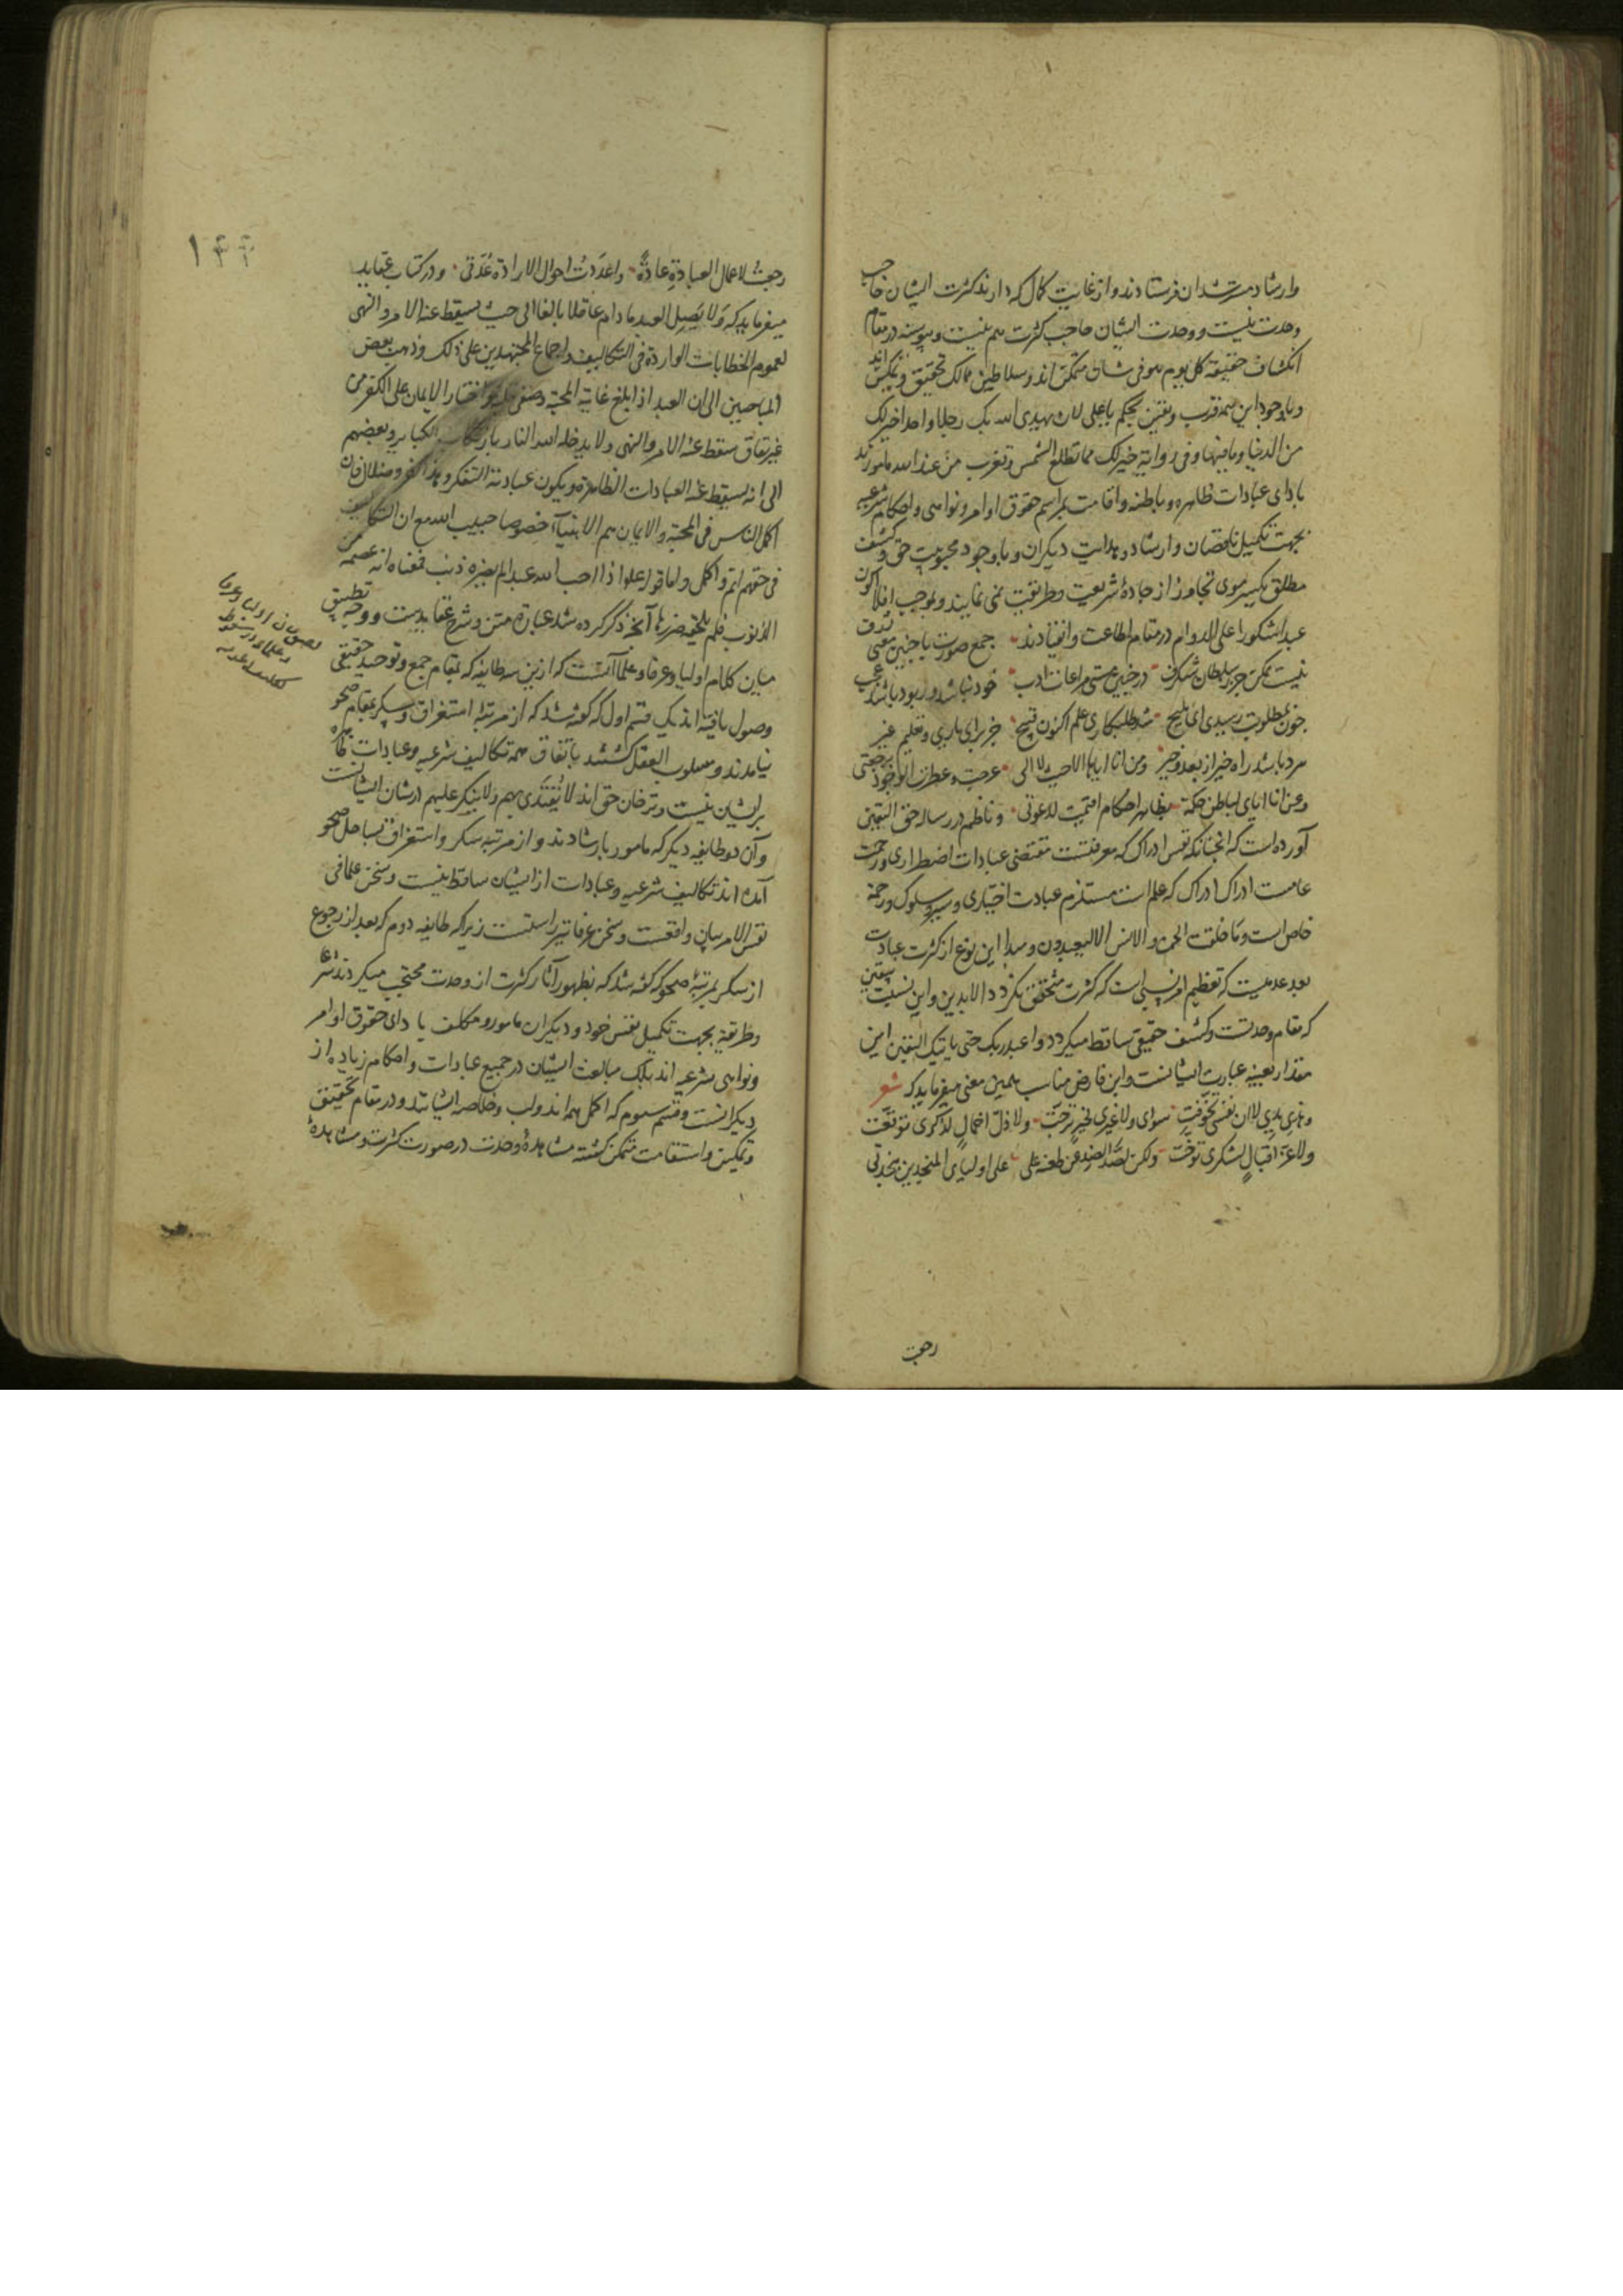 وارشاد مسترشدان فرستادند و از غایت کمال که دارند کثرت ایشان حاجب
وحدت نیست و وحدت ایشان حاجب کثرت هم نیست و پیوسته در مقام
انکشاف حقیقة کل یوم هو فی شان متمکن اند و سلاطین ممالک تحقیق و تمکین اند
و با وجود این همه قرب و یقین بحکم یا علی لان یهدی الله بک رجلا واحدا خیر لک
من الدنیا وما فیها و فی روایة خیر لک مما تطلع الشمس و تغرب من عند الله مامورند
بادای عبادات ظاهره و باطنه و اقامت مراسم حقوق اوامر و نواهی و احکام شرعیه
بجهت تکمیل ناقصان و ارشاد و هدایت دیگران و باوجود محبوبیت حق و کشف
مطلق یکسر موی تجاوز از جاده شریعت و طریقت نمی نمایند و بموجب افلا اکون
عبدا شکورا علی الدوام در مقام اطاعت و انقیادند جمع صورت با چنین معنی ژرف
نیست ممکن جز ز سلطان شگرف در چنین مستی مراعات ادب خود نباشد ور بود باشد عجب
چون بمطلوبت رسیدی ای ملیح شد طلبکاری علم اکنون قبیح جز برای یاری و تعلیم غیر
سرد باشد راه خیر از بعد خیر ومن انا ایاها الی حیث لا الی عرجت وعطرت الوجود برجعتی
وعن انا ایای لباطن حکمة بظاهر احکام اقیمت لدعوتی و ناظم در رساله حق الیقین
آورده است که انچنانکه نفس ادراک که معرفتست مقتضی عبادات اضطراری و رحمت
عامست ادراک ادراک که علم است مستلزم عبادت اختیاری و سیر و سلوک و رحمة
خاص است وما خلقت الجن والانس الا لیعبدون و مبدا این نوع از کثرت عبادت
بعد عدمیت که تعظیم امر نسبی است که کثرت متحقق نگردد الا بدین و این نسبت یقین
که مقام وحدتست و کشف حقیقی ساقط میگردد واعبد ربک حتی یاتیک الیقین این
مقدار بعینه عبارت ایشانست و ابن فارض مناسب همین معنی میفرماید که شعر
سوای ولا غیری لخیر ترجت ولا ذل اخمال لذکری توقعت
ولا عز اقبال لشکری توخت ولکن لصد الضد عن طعنه علی علی اولیای المنجدین بنجدتی
رجعت
رجعت لاعمال العبادة عادة واعددت احوال الارادة عدتی و در کتاب عقاید
میفرماید که ولا یصل العبد مادام عاقلا بالغا الی حیث یسقط عنه الامر والنهی
لعموم الخطابات الواردة فی التکالیف واجماع المجتهدین علی ذلک وذهب بعض
المباحیین الی ان العبد اذا بلغ غایة المحبة وصفی قلبه واختار الایمان علی الکفر من
غیر نفاق سقط عنه الامر والنهی ولا یدخله الله النار بارتکاب الکبایر وبعضهم
الی انه یسقط عنه العبادات الظاهرة ویکون عبادته التفکر وهذا کفر وضلال فان
اکمل الناس فی المحبة والایمان هم الانبیآ خصوصا حبیب الله مع ان التکالیف
فی حقهم اتم واکمل واما قوله علیه اذا احب الله عبدا لم یضره ذنب فمعناه انه عصمه من
الذنوب فلم یلحقه ضررها آنچه ذکر کرده شد عبارة متن و شرح عقایدست و وجه تطبیق
میان کلام اولیا و عرفا و علما آنست که ازین سه طایفه که بمقام جمع و توحید حقیقی
وصول یافته اند یک قسم اول که گفته شد که از مرتبه استغراق و سکر بمقام صحو
نیامدند و مسلوب العقل گشتند باتفاق همه تکالیف شرعیه و عبادات ظاهره
بر ایشان نیست و ترخان حق اند لا یقتدی بهم ولا ینکر علیهم در شان ایشانست
و آن دو طایفه دیگر که مامور بارشادند و از مرتبه سکر و استغراق بساحل صحو
آمده اند تکالیف شرعیه و عبادات از ایشان ساقط نیست و سخن علما فی
نفس الامر بیان واقعست و سخن عرفا نیز راستست زیرا که طایفه دوم که بعد از رجوع
از سکر بمرتبه صحو که گفته شد که بظهور آثار کثرت از وحدت محتجب میگردند شرعا
و طریقة بجهت تکمیل نفس خود و دیگران مامور و مکلف بادای حقوق اوامر
و نواهی شرعیه اند بلک مبالغت ایشان در جمیع عبادات و احکام زیاده از
دیگرانست و قسم سیوم که اکمل همه اند و لب و خلاصه ایشانند و در مقام تحقیق
و تمکین و استقامت متمکن گشته مشاهده وحدت در صورت کثرت و مشاهده